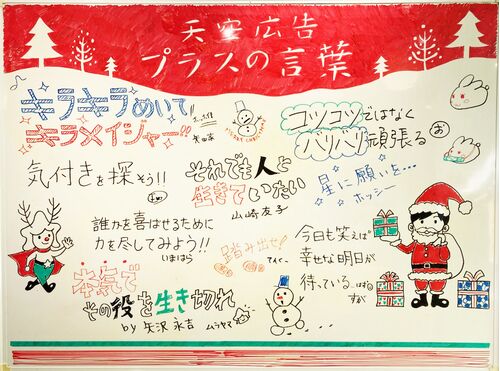 天空広告
プラスの言葉
キラキラめいて!!
キラメイジャー!!
MERRY CHRISTMAS
コツコツではなく
バリバリ頑張る
お
気付きを探そう!!
それでも人と
生きていたい
山崎友子
星に願いを…
ホッシー
誰かを喜ばせるために
力を尽してみよう!!
いまはら
踏み出せ!
てんぐ〜
今日も笑えば
幸せな明日が
待っている
本気で
その役を生き切れ
by 矢沢永吉
ムラヤマ